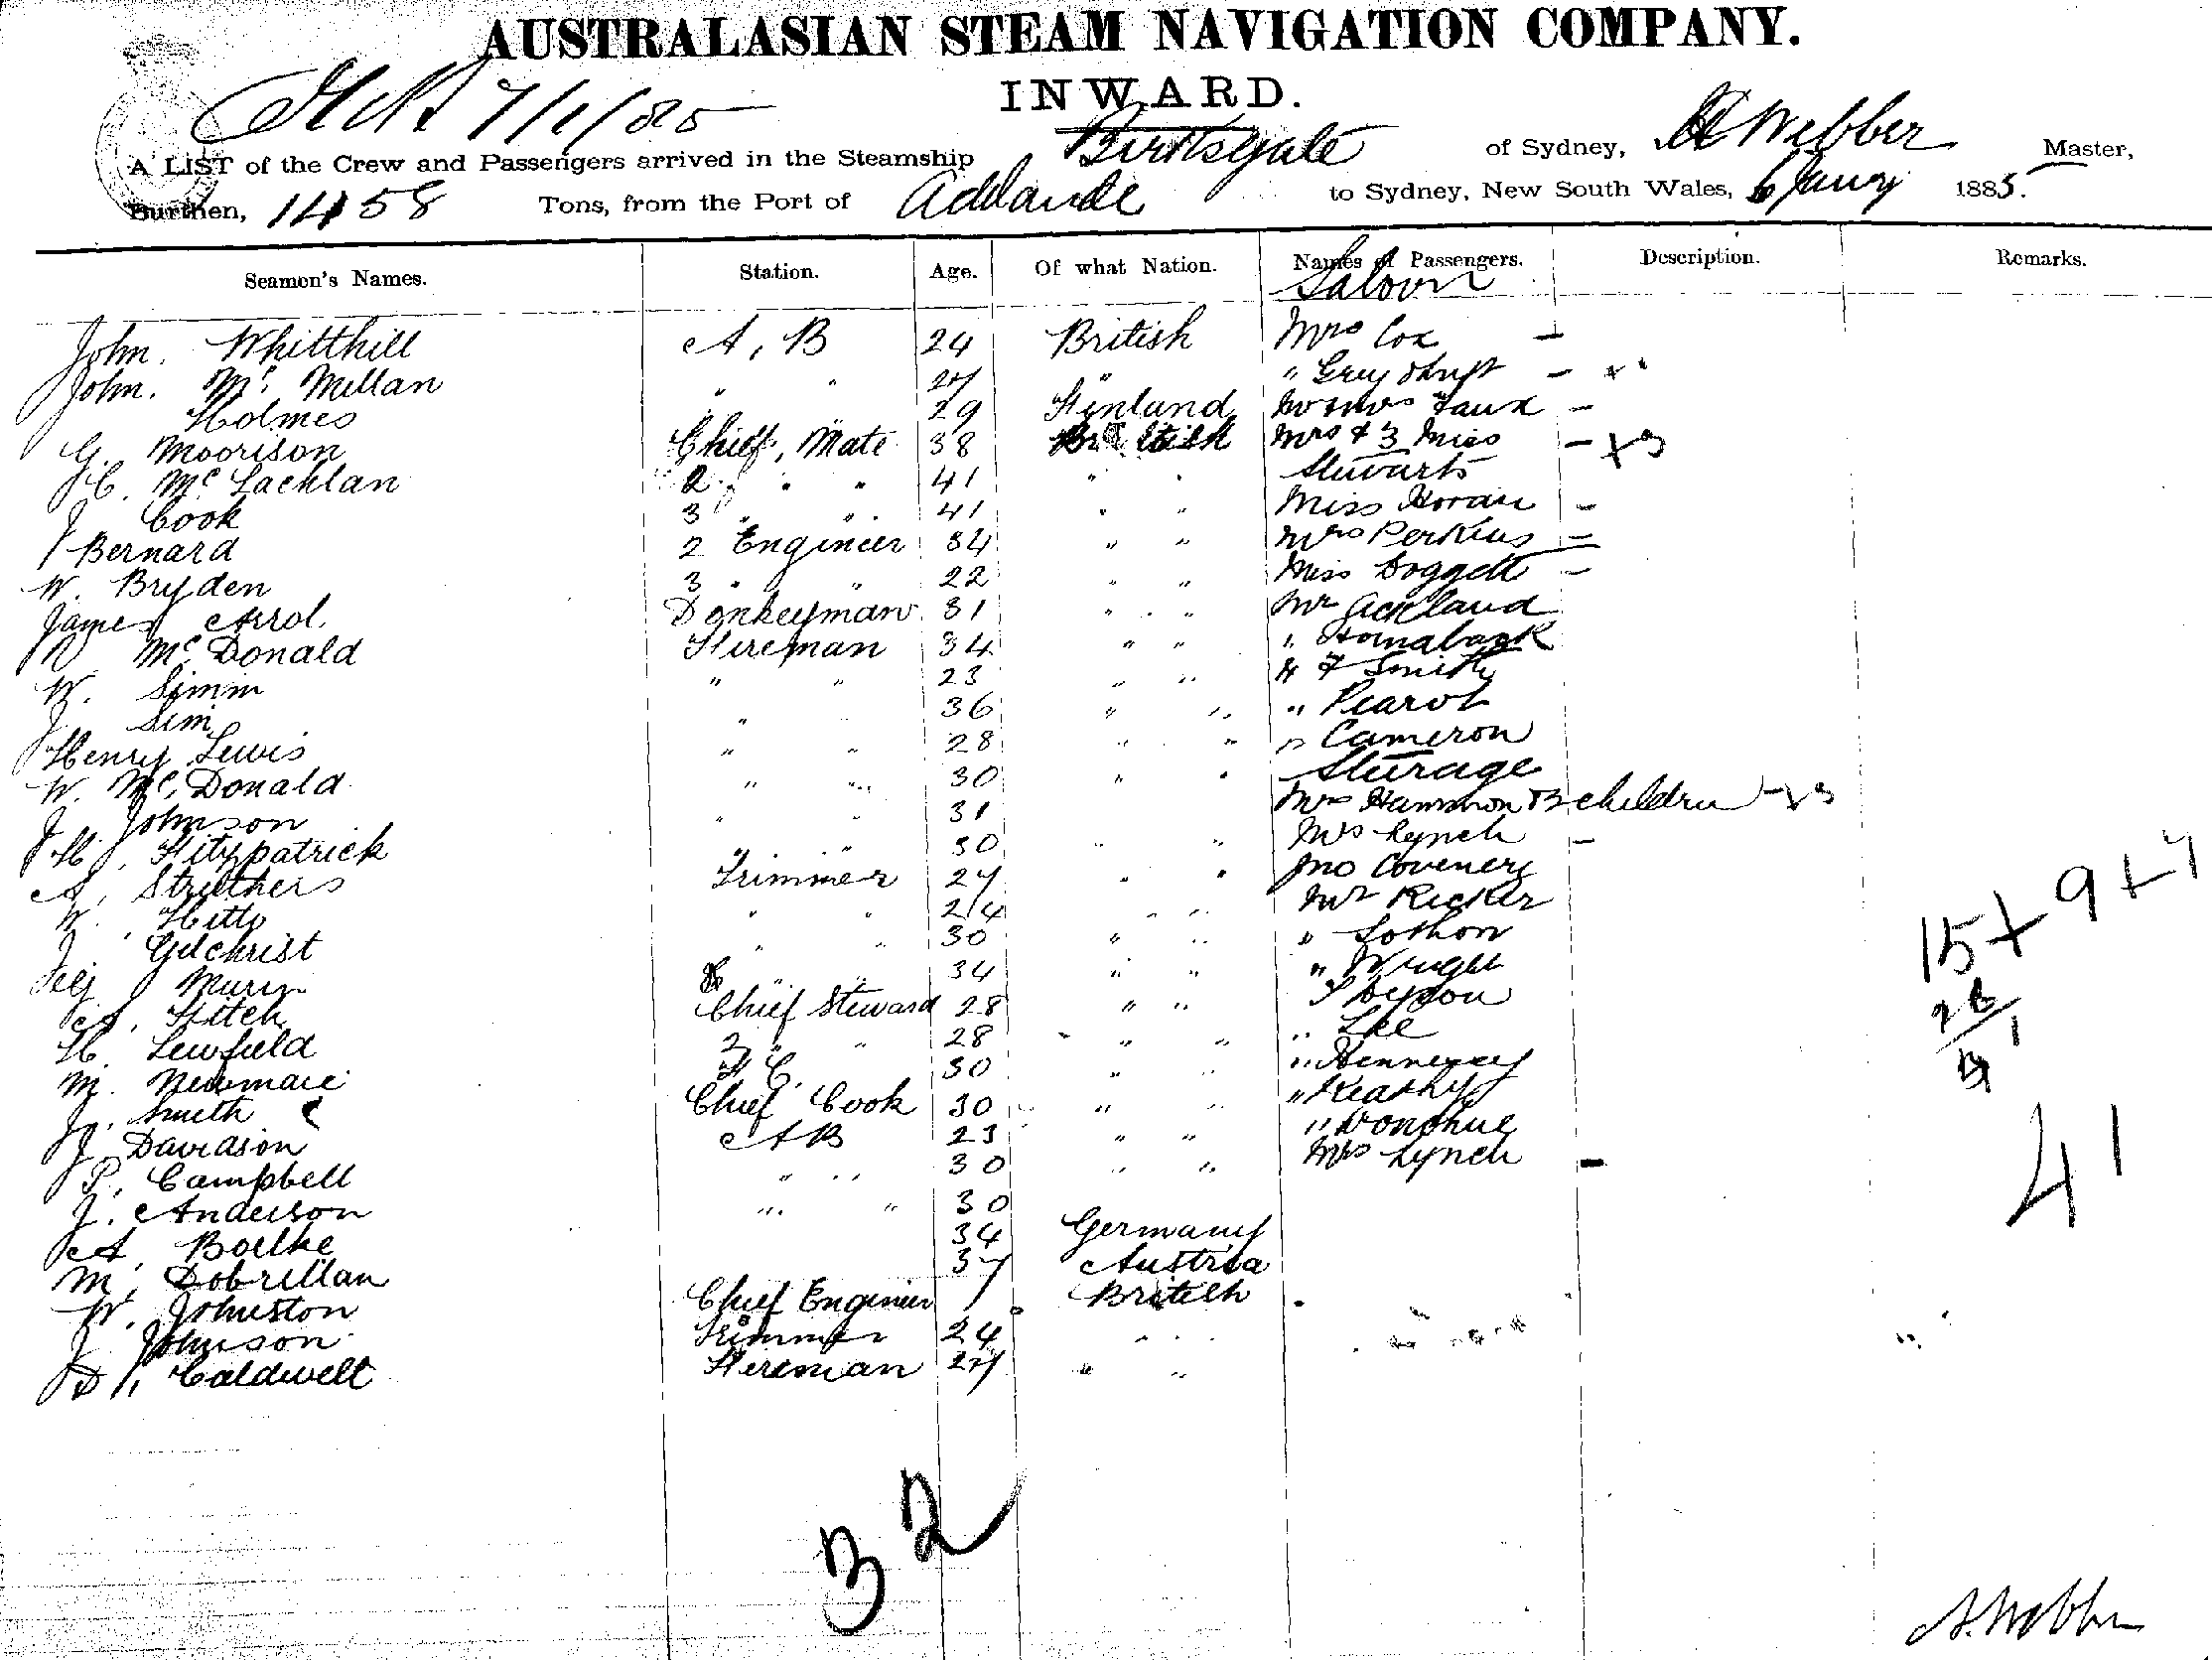 AUSTRALASIAN STEAM NAVIGATION COMPANY.
INWARD.
7/1/85
A LIST of the Crew and Passengers arrived in the Steamship Birksgate of Sydney, H Webber Master,
Burthen, 1458 Tons, from the Port of Adelaide to Sydney, New South Wales, 6 Jany 1885.
Seamen's Names. Station. Age. Of what Nation. Names of Passengers. Description. Remarks.
Saloon
John. Whitthill A, B 24 British Mrs Cox —
John. Mc. Millan " " 27 " " —
Holmes 29 Finland Faux —
G Moorison Chief, Mate 38 British Mrs & 3 Miss — + 3
H. Mc Lachlan 2 " " 41 " " Stuvarts
J Cook 3 " " 41 " " Miss Horan —
Bernard 2 Engineer 34 " " Mrs Perkins —
W. Bryden 3 " " 22 " " Miss Doggett —
James Arrol Donkeyman 31 " " Mr Ackland
Mc Donald Fireman 34 " " " Hornabrook
W. Simm " " 23 " " " F Smith
J Sim " 36 " " " Pearot
Henry Lewis " " 28 " " " Cameron
W. Mc, Donald " " 30 " " Sturage
J Johnson " " 31 Mrs Hammon & 3 children — + 3
H, Fitzpatrick " " 30 " " Mrs Lynch —
A, Struthers Trimmer 27 " " Jno Covenery
W. Hitto " " 24 " " Mr Ricker
J Gilchrist " " 30 " " " Lothon
Murin " " 34 " " " Wright
A. Fitch Chief Steward 28 " " Dyson
H. Lewfield 2 " " 28 " " " Lee
M. Newmare 30 " " " Hennessey
J. Smith Chief Cook 30 " " "
J Davidson A B 23 " " " Donohue
P. Campbell " " 30 " " Mrs Lynch —
J. Anderson " " 30
A Boelke 34 Germany
M, Dobrillan 37 Austria
W. Johnston Chief Engineer British
J Johnson Trimmer 24 " "
D, Caldwell Fireman 27 " "
15 + 9 + 7
26
41
32
H. Webber